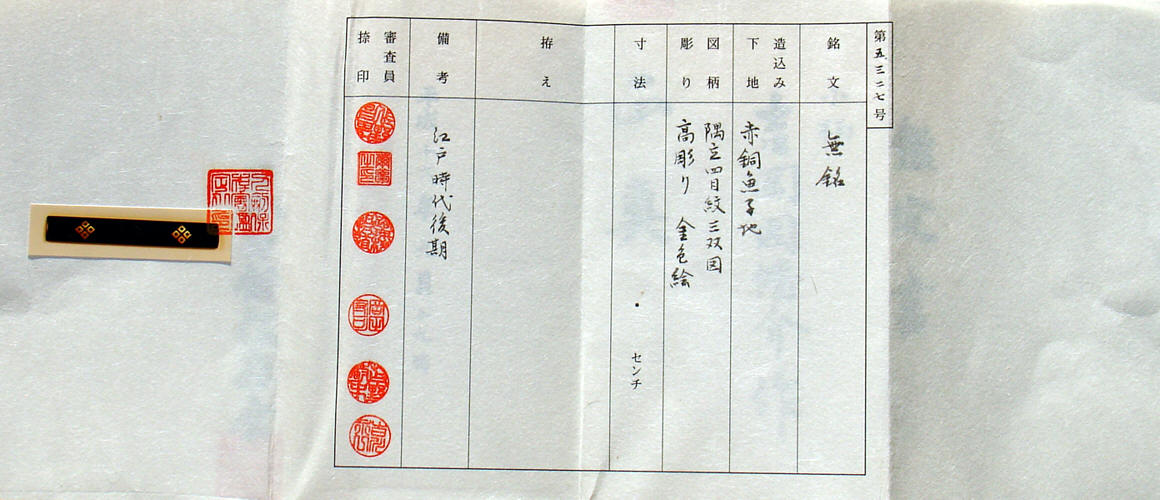 第五三二七号
銘文
無銘
造込み
下地
赤銅魚子地
図柄
彫り
隅立四目紋三双図
高彫り 金色絵
寸法
・ センチ
拵え
備考
江戸時代後期
審査員
捺印